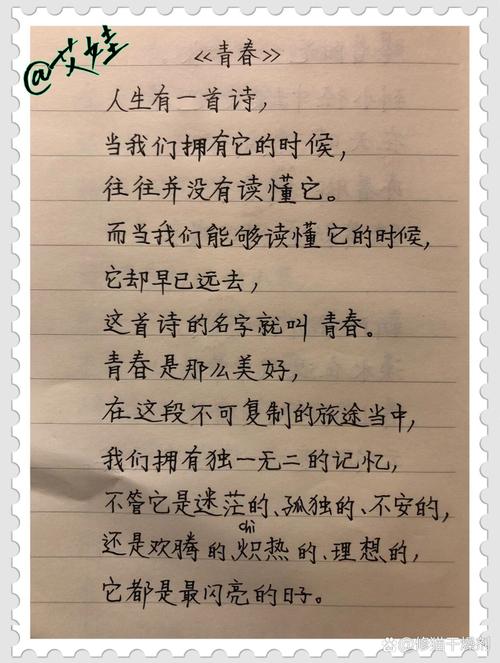 @艾娃
《青春》
人生有一首诗，
当我们拥有它的时候，
往往并没有读懂它。
而当我们能够读懂它的时候，
它却早已远去，
这首诗的名字就叫青春。
青春是那么美好，
在这段不可复制的旅途当中，
我们拥有独一无二的记忆，
不管它是迷茫的、孤独的、不安的，
chì
还是欢腾的、炽热的、理想的，
它都是最闪亮的日子。
@修猫干爆剂